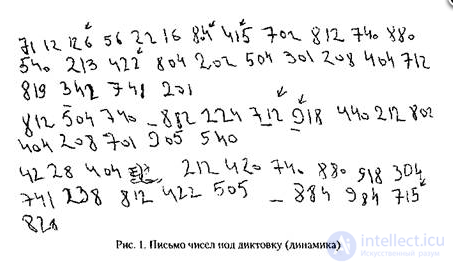 71 12 126 56 22 16 84 415 702 812 740 880
540 213 422 804 202 504 301 208 404 712
819 342 741 201
812 504 740 – 882 224 712 918 440 212 802
404 208 701 905 540
42 28 404 212 420 740 880 918 304
741 238 812 422 505 – 884 984 715
820
Рис. 1. Письмо чисел под диктовку (динамика)
intellect.icu
Искусственный разум